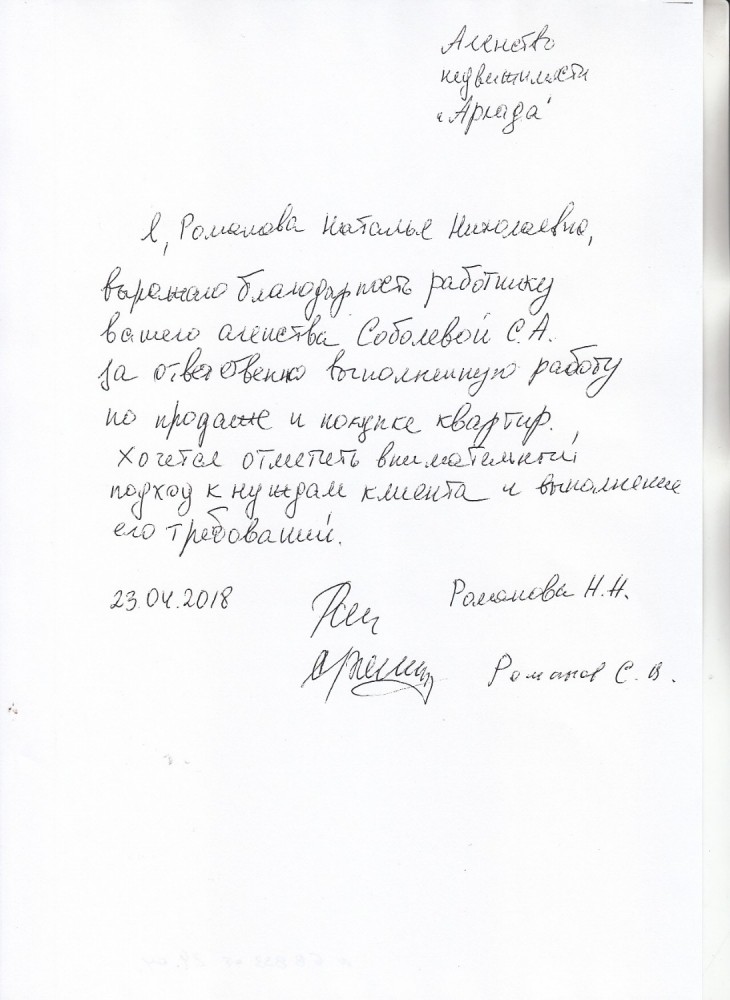 Агенство
недвижимости
"Аркада"
Я, Романова Наталья Николаевна,
выражаю благодарность работнику
вашего агенства Соболевой С.А.
за ответственно выполненную работу
по продаже и покупке квартир.
Хочется отметить внимательный
подход к нуждам клиента и выполнение
его требований.
23.04.2018 Романова Н.Н.
Романов С.В.